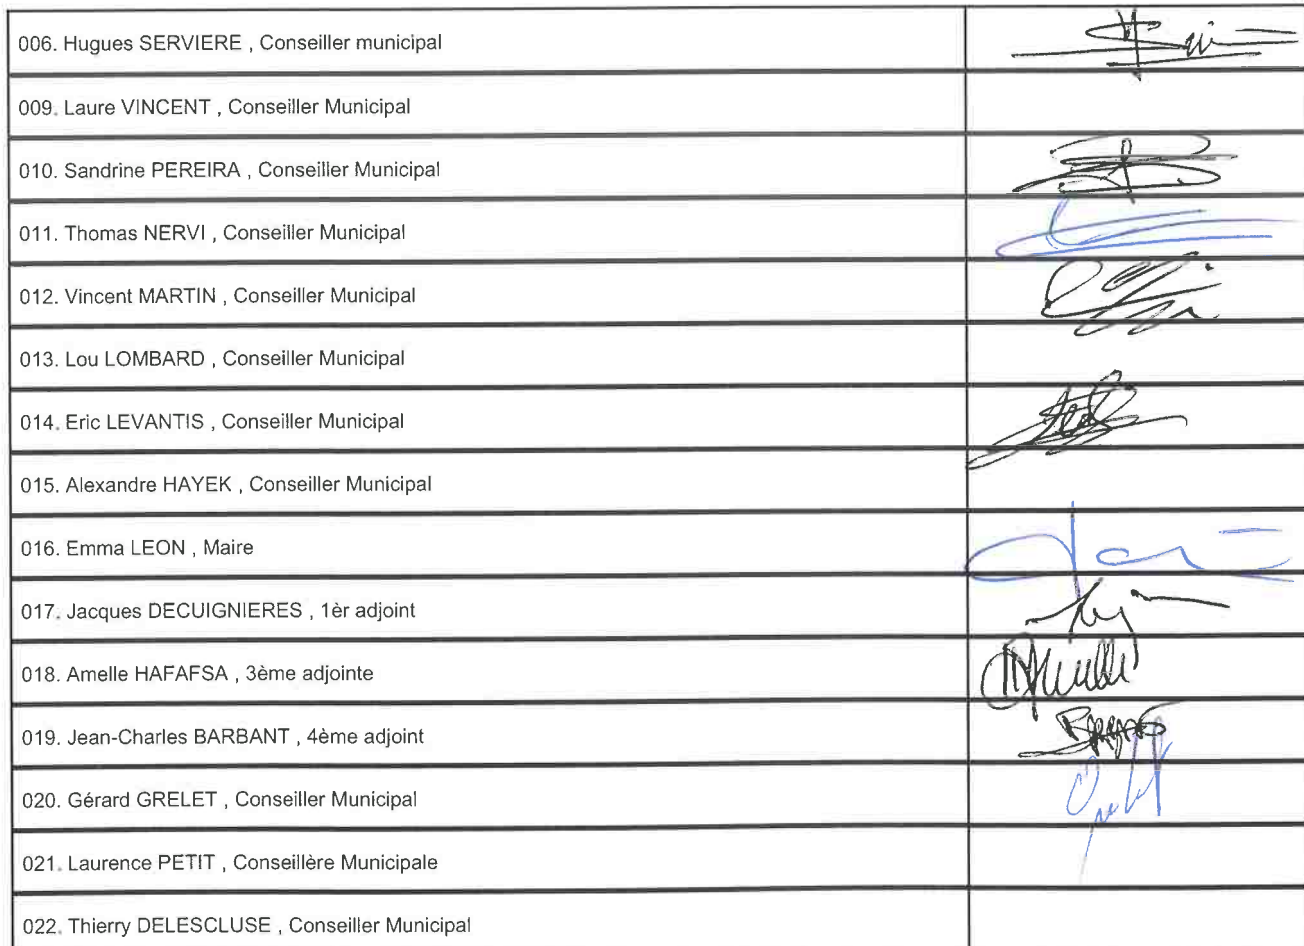 006. Hugues SERVIERE , Conseiller municipal
009. Laure VINCENT , Conseiller Municipal
010. Sandrine PEREIRA , Conseiller Municipal
011. Thomas NERVI , Conseiller Municipal
012. Vincent MARTIN , Conseiller Municipal
013. Lou LOMBARD , Conseiller Municipal
014. Eric LEVANTIS , Conseiller Municipal
015. Alexandre HAYEK , Conseiller Municipal
016. Emma LEON , Maire
017. Jacques DECUIGNIERES , 1èr adjoint
018. Amelle HAFAFSA , 3ème adjointe
019. Jean-Charles BARBANT , 4ème adjoint
020. Gérard GRELET , Conseiller Municipal
021. Laurence PETIT , Conseillère Municipale
022. Thierry DELESCLUSE , Conseiller Municipal